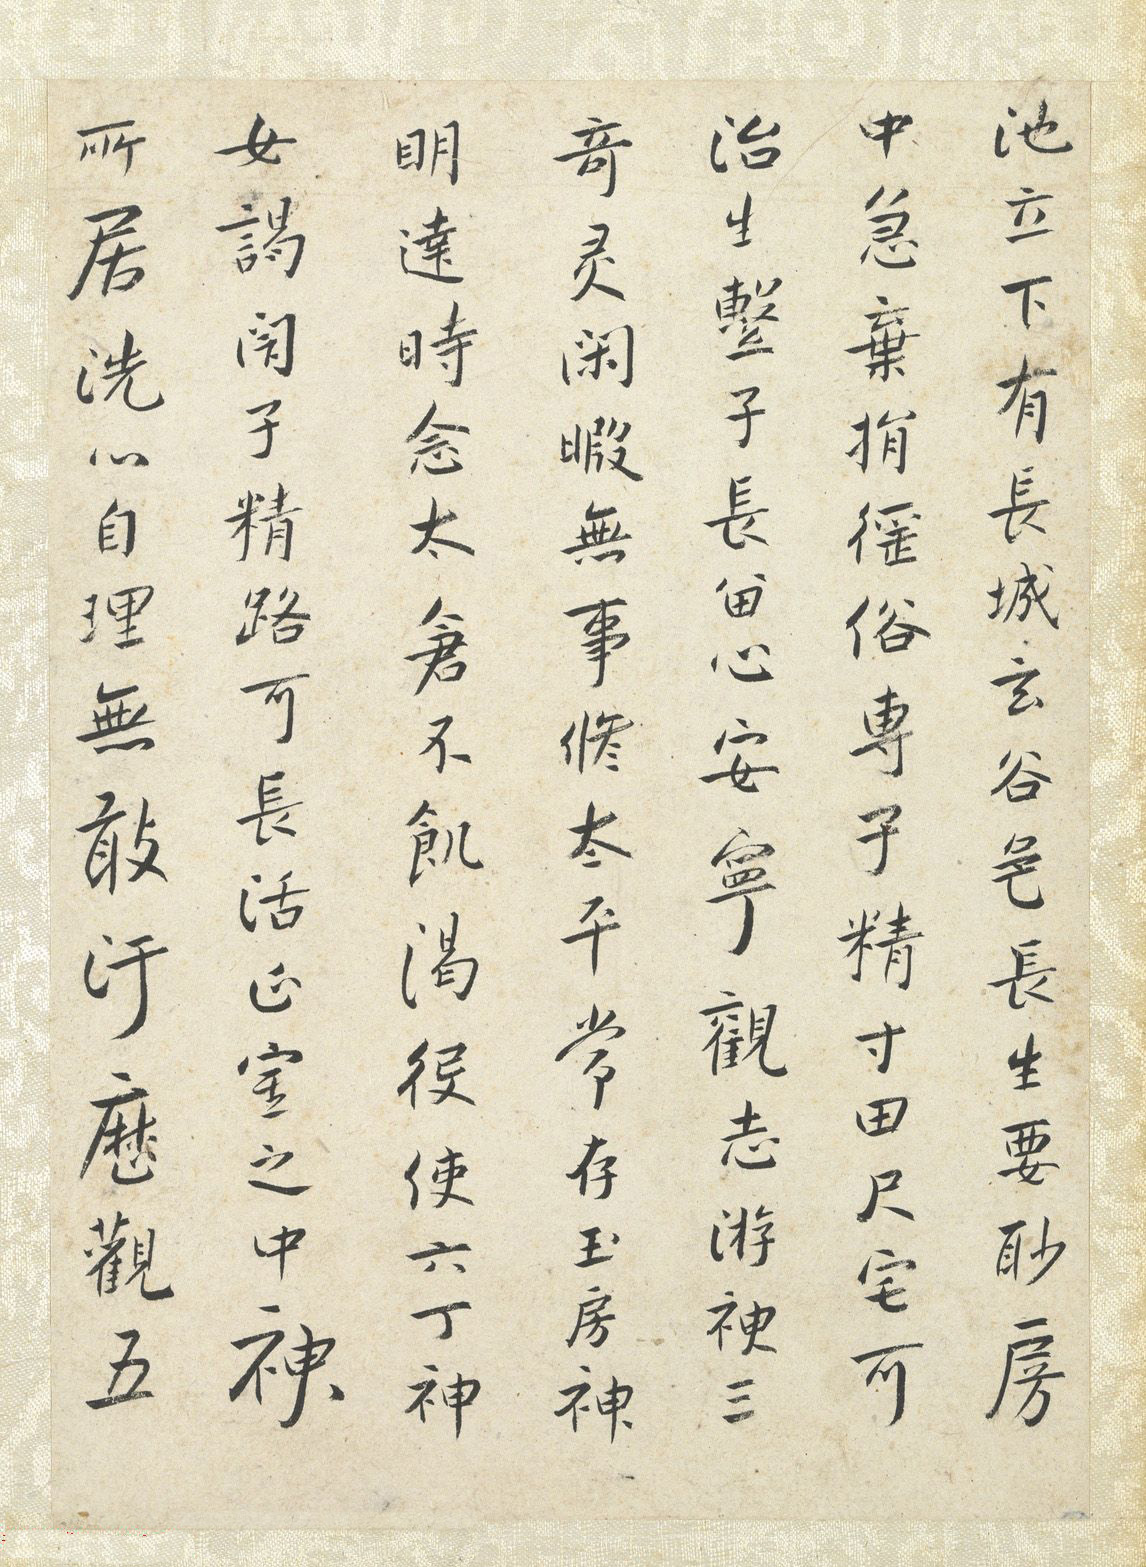 池立下有長城玄谷邑長生要眇房
中急棄捐淫俗專子精寸田尺宅可
治生繫子長留心安寧觀志游神三
奇灵閑暇無事脩太平常存玉房神
明達時念太倉不飢渴役使六丁神
女謁閉子精路可長活正室之中神
所居洗心自理無敢汙歷觀五